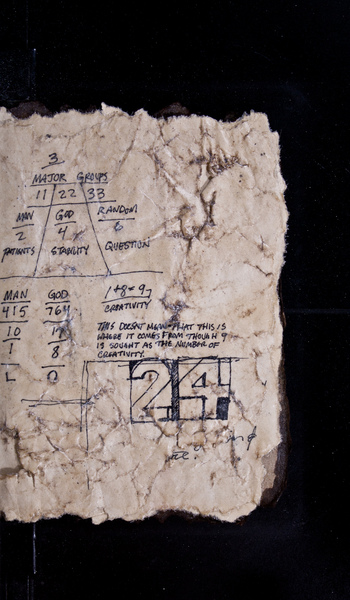 3
MAJOR GROUPS
11 22 33
MAN GOD RANDOM
2 4 6
PATIENTS STABILITY QUESTION
MAN GOD 1+8=9
415 764 CREATIVITY
10 17
1 8
THIS DOESNT MEAN THAT THIS IS
WHERE IT COMES FROM THOUGH 9
IS SOUGHT AS THE NUMBER OF
CREATIVITY.
24